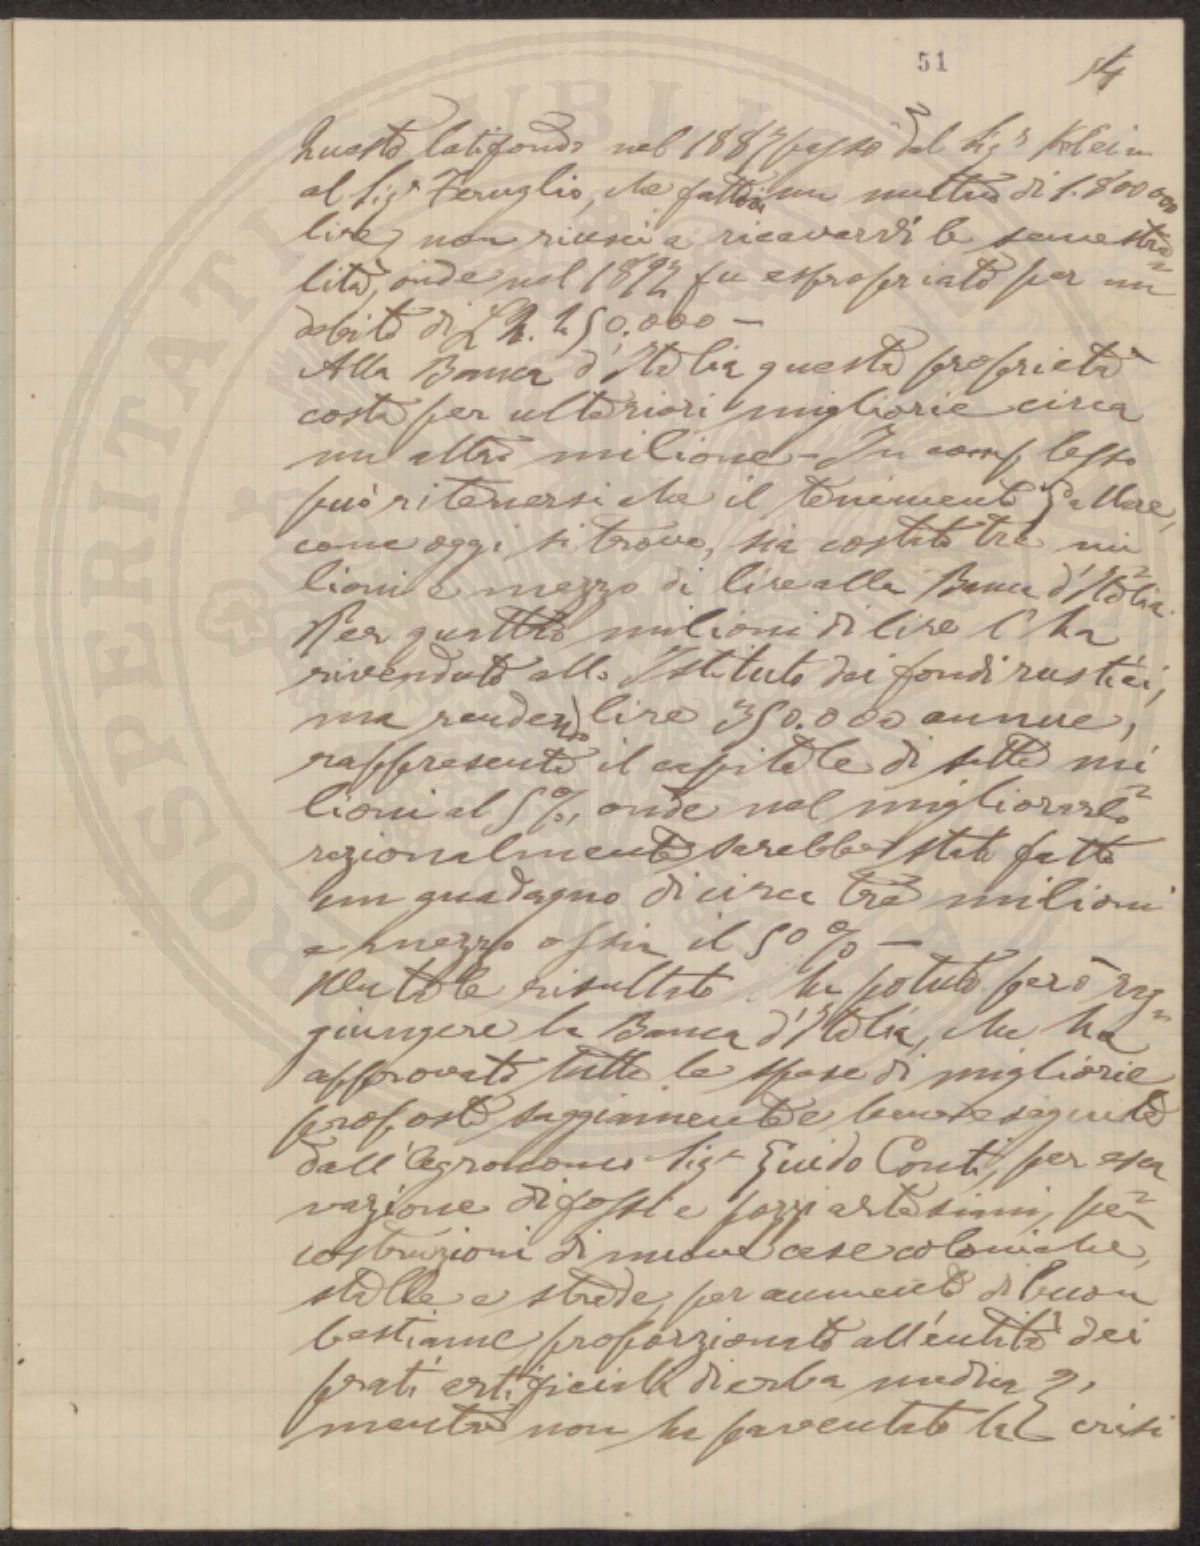 51
54
Questo latifondo nel 1887 passò dal Sigr Klein
al Sigr Feruglio, che fattovi un mutuo di 1.800000
lire, non riuscì a ricavarvi le semestra=
lità, onde nel 1892 fu espropriato per un
debito di L 2.250,000 —
Alla Banca d'Italia questa proprietà
costa per ulteriori migliorie circa
un altro milione — In complesso
può ritenersi che il tenimento Gallare,
come oggi si trova, sia costato tre mi
lioni e mezzo di lire alla Banca d'Italia.
Per quattro milioni di lire l'ha
rivenduto allo Istituto dei fondi rustici,
ma rendendo lire 350.000 annue,
rappresenta il capitale di sette mi
lioni al 5%, onde nel migliorarlo
razionalmente sarebbe stato fatto
un guadagno di circa tre milioni
e mezzo ossia il 50% —
Un tale risultato ha potuto però rag=
giungere la Banca d'Italia, che ha
approvato tutte le spese di migliorie
proposte saggiamente e bene eseguite
dall'Agronomo Sigr Guido Conti, per esca
vazione di fossi e pozzi artesiani, per
costruzioni di nuove case coloniche,
stalle e strade, per aumento di buon
bestiame proporzionato all'entità dei
prati artificiali di erba medica,
mentre non ha paventato la crisi